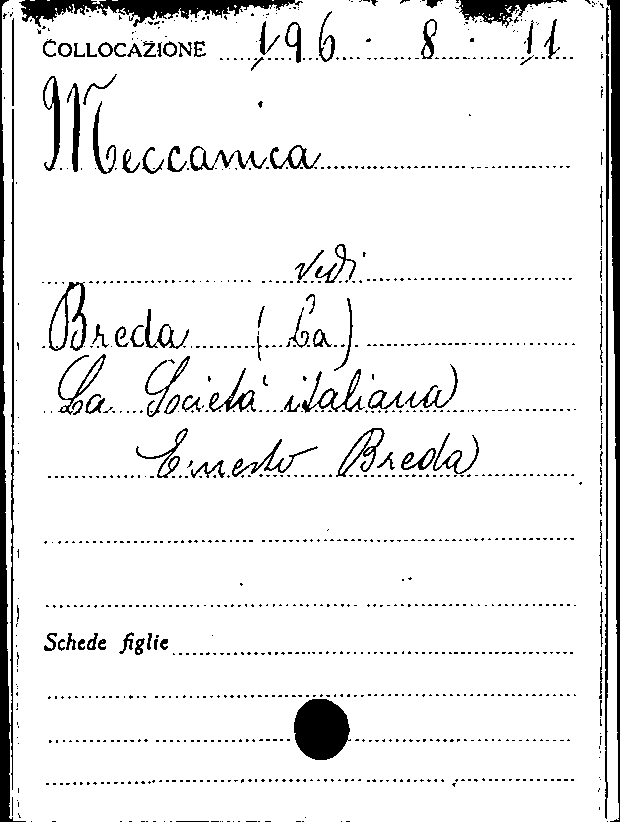 COLLOCAZIONE 196 · 8 · 11
Meccanica
vedi
Breda (La)
La Società italiana
Ernesto Breda
Schede figlie